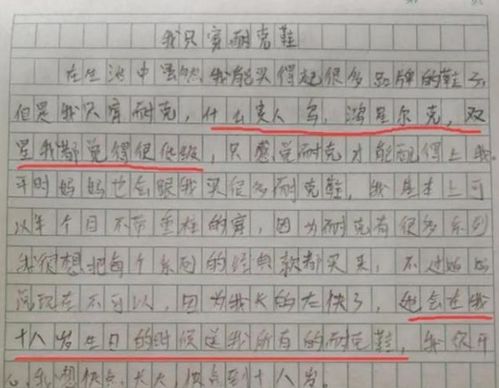 我只穿耐克鞋
在生活中虽然我能买得起很多品牌的鞋子
但是我只穿耐克，什么贵人鸟，鸿星尔克，双
星我都觉得很低级，只感觉耐克才能配得上我。
平时妈妈也会跟我买很多耐克鞋，我基本上可
以半个月不带重样的穿，因为耐克有很多系列
我很想把每个系列的经典款都买来，不过妈妈
说现在不可以，因为我长的太快了，她会在我
十八岁生日的时候送我所有的耐克鞋，我很开
心，我想快点长大，快点到十八岁。